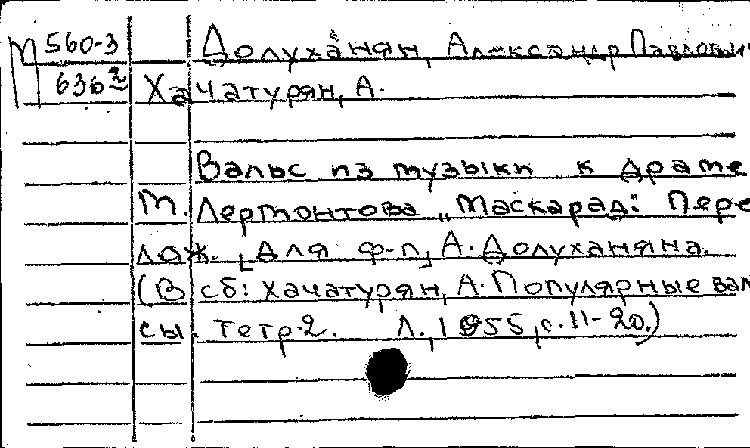 М 560-3 Долуханян, Александр Павлович
636² Хачатурян, А.
Вальс из музыки к драме
М. Лермонтова „Маскарад". Пере
лож. [для ф-п], А. Долуханяна.
(В сб: Хачатурян, А. Популярные валь
сы. Тетр. 2. Л., 1955, с. 11-20.)